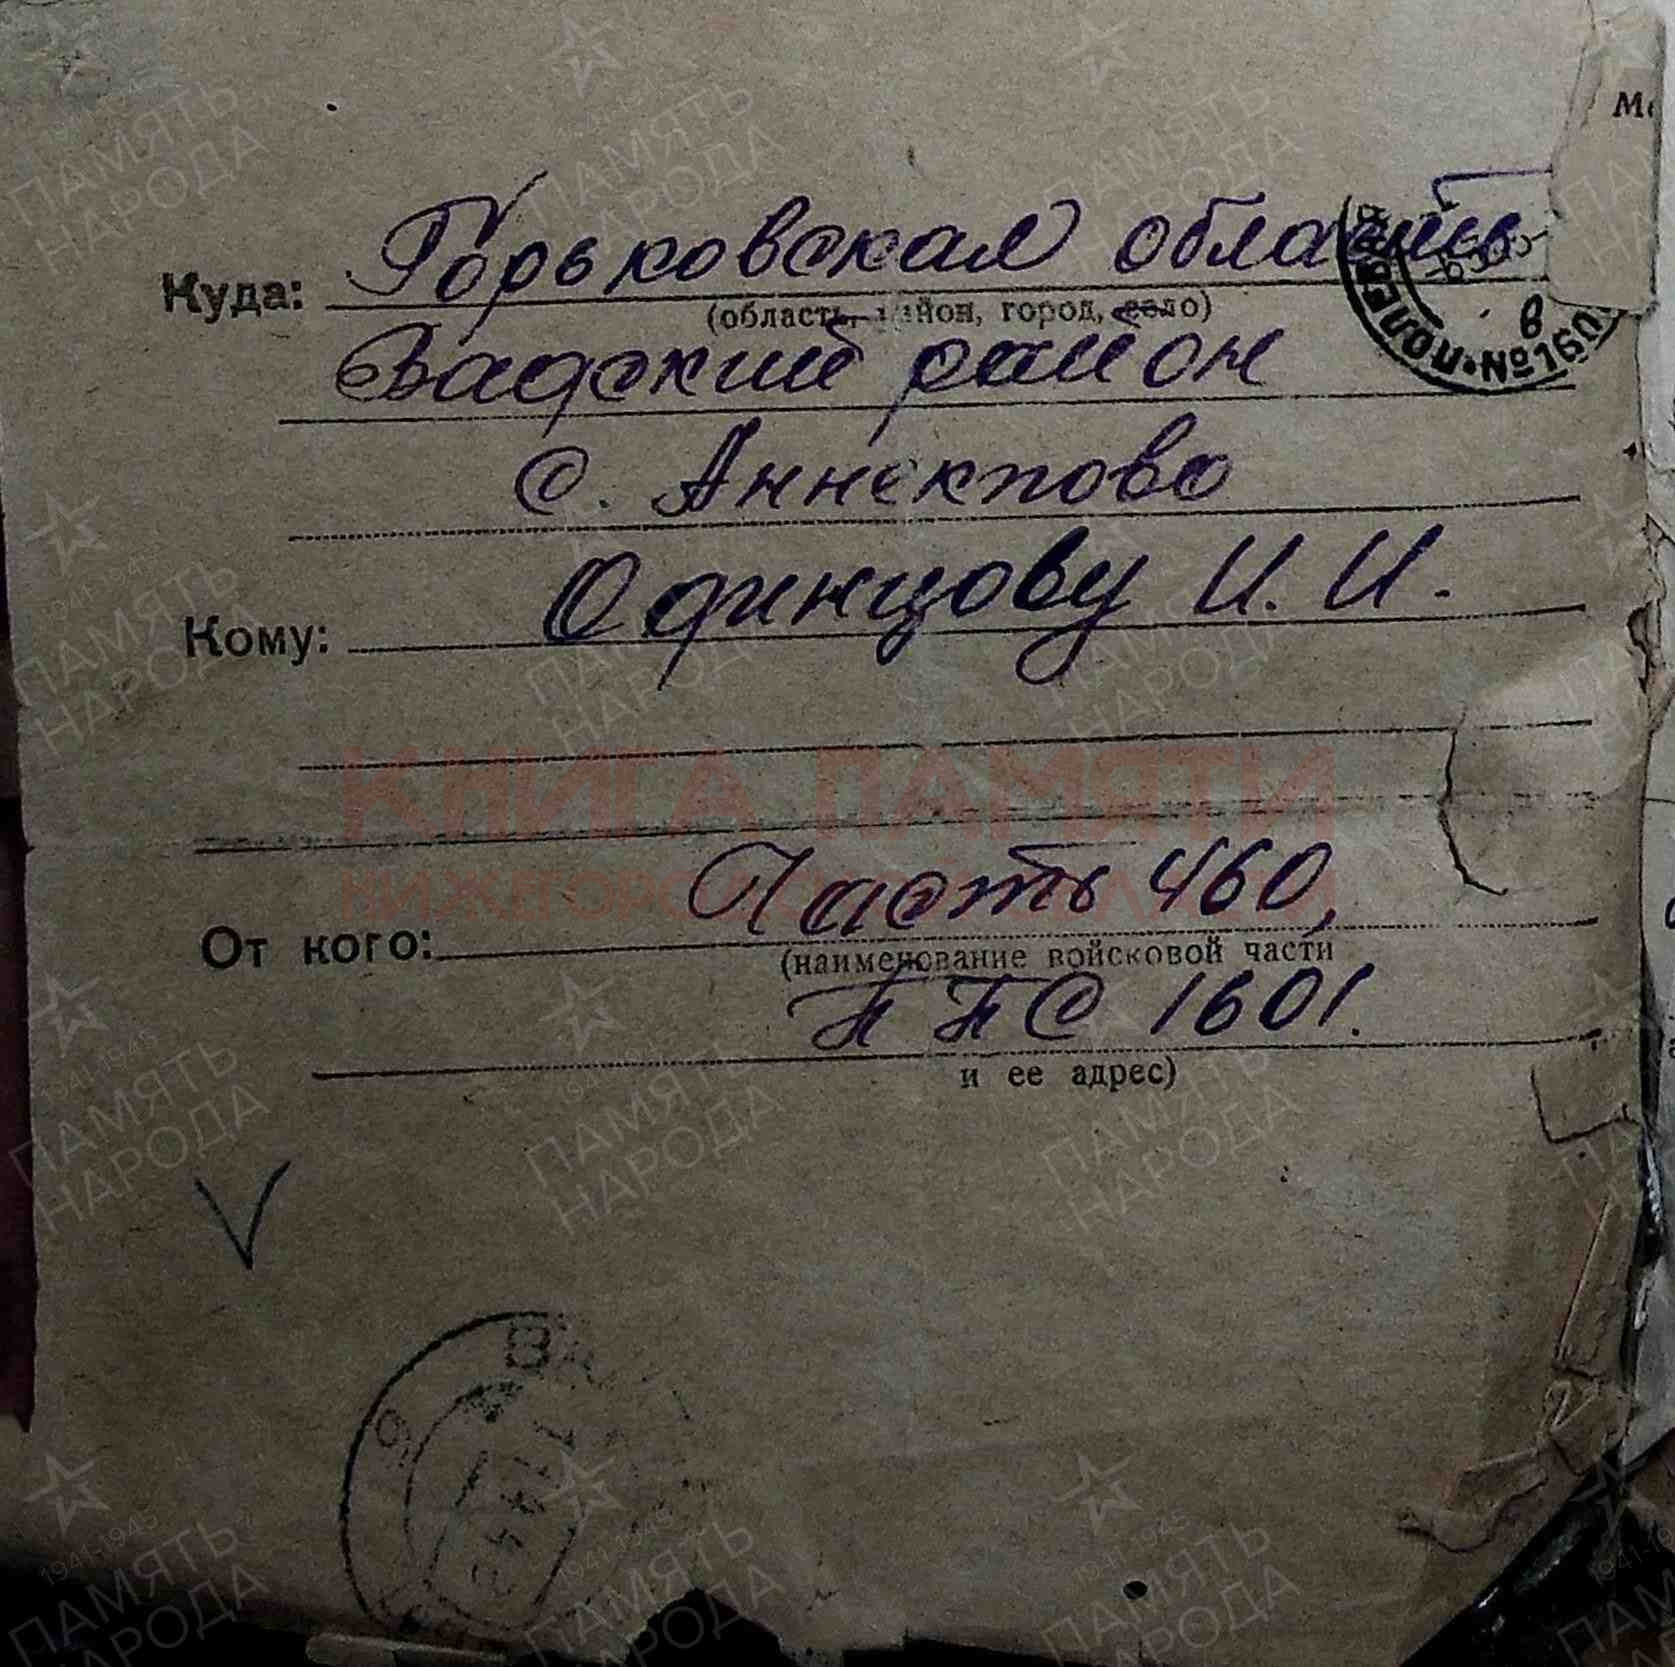 Куда: Горьковская область
(область, район, город, село)
Вадский район
с. Аннектово
Кому: Одинцову И. И.
КНИГА ПАМЯТИ
От кого: Часть 460,
(наименование войсковой части
ППС 1601.
и ее адрес)
№160
в
ПАМЯТЬ
НАРОДА
1941-1945